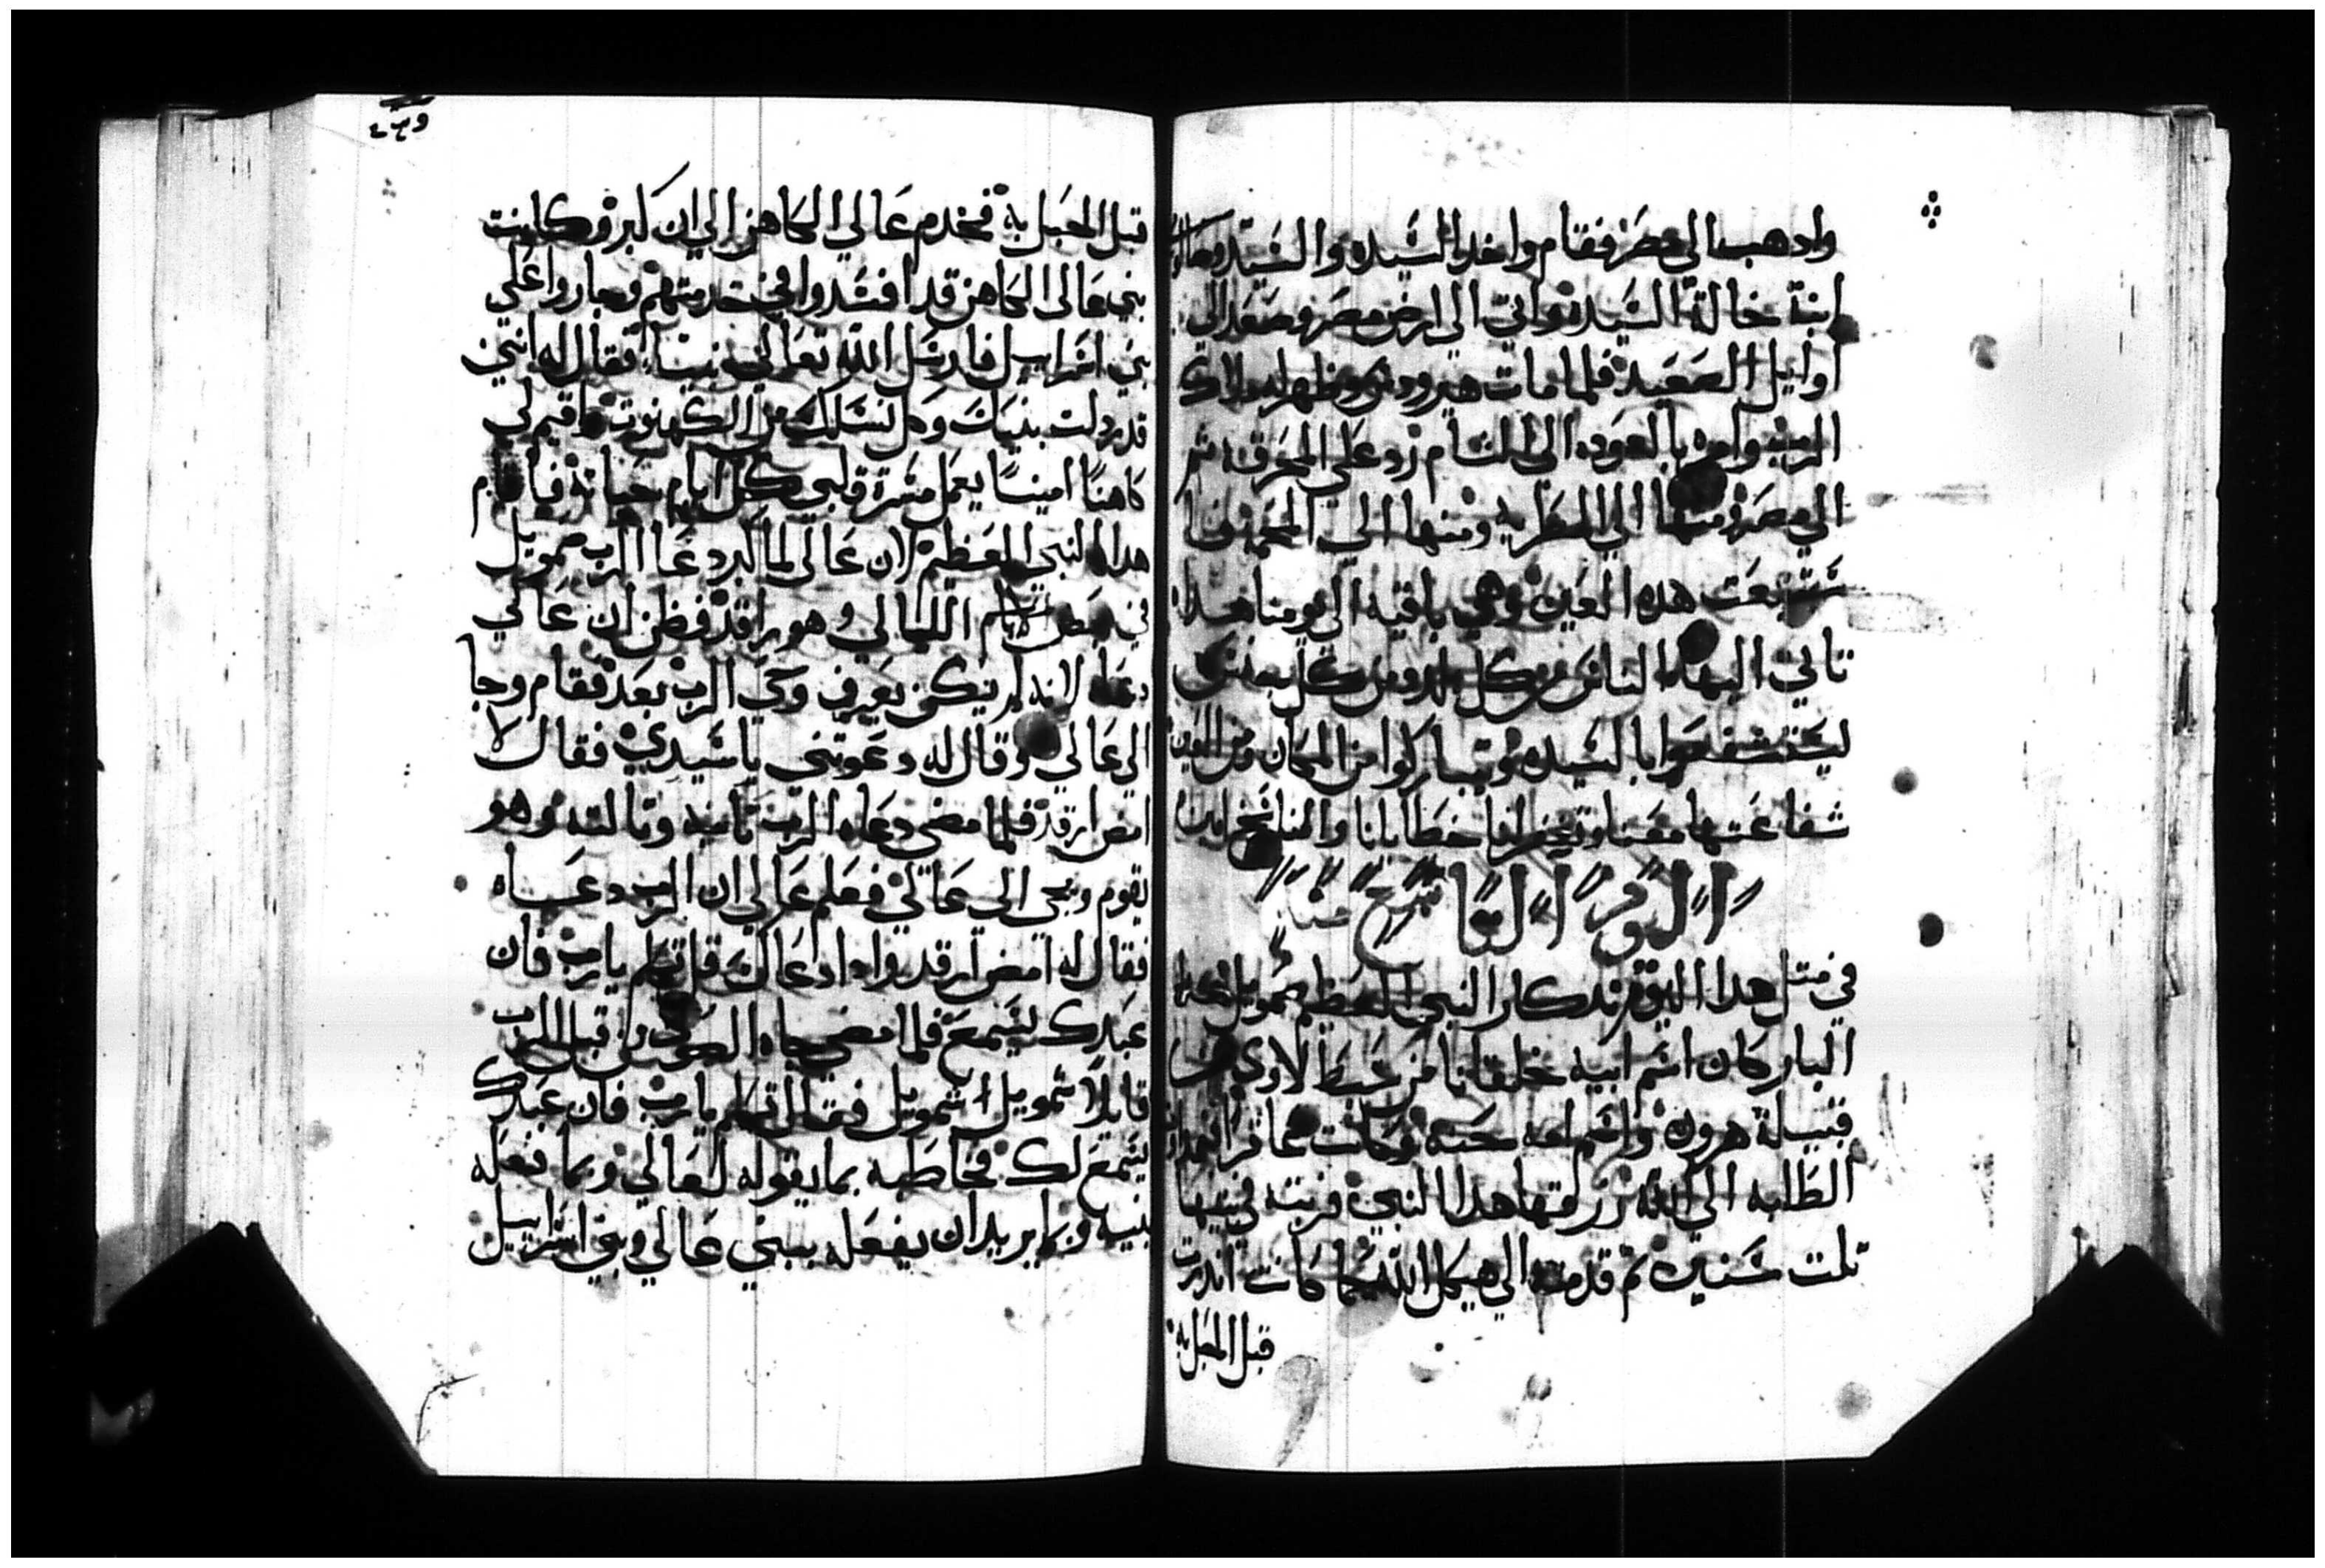 واذهب الى مصر فقام واخد السيده والسيد وصالومي
ابنة خالة السيده واتي الي ارض مصر وصعد الي
اوايل الصعيد فلما مات هيرودس وظهر له ملاك
الرب وامره بالعوده الى الشام زد علي المحرق ثم
الي مصر ومنها الي المطريه ومنها الي المحمه فا
نبعت هذه العين وهي باقيه الي يومنا هدا
تاتي اليها الناس من كل بلد ومن كل بعد
ليستشفعوا بالسيده ويتباركوا من المكان ومن العين
شفاعتها معنا وتغفر لنا خطايانا والناسخ امين
اليوم التاسع منه
في متل هدا اليوم تدكار النبي العظيم صمويل
البار كان اسم ابيه حلقانا من سبط لاوي من
قبيلة هرون واسم امه حنه وكانت عاقرا
الطلبه الي الله رزقها هدا النبي فربته في بيتها
تلت سنين ثم قدمته الي هيكل الله كما كانت اندرت
قبل الحبل به
قبل الحبل به فخدم عالي الكاهن الي ان كبر وكانت
بني عالى الكاهن قد افسدوا في خدمتهم وجاروا علي
بني اسراييل فارسل الله تعالي نبيا فقال له انني
قد ردلت بنيك وكل نسلك من الكهنوت واقيم لي
كاهنا امينا يعمل مسرة قلبي كل ايام حياته فيا قام
هدا النبي العظيم لان عالي لما كبر دعا الرب صمويل
في بعض الايام الليالي وهو راقد فظن ان عالي
دعاه لانه لم يكن يعرف وحي الرب بعد فقام وجا
الي عالي وقال له دعوتني يا سيدي فقال لا
امض ارقد فلما مضي دعاه الرب تانيه وتالته وهو
يقوم ويجي الي عالي فعلم عالي ان الرب دعاه
فقال له امض ارقد وادا دعاك قل تكلم يا رب فان
عبدك يسمع فلما مضي جاه الصوت من قبل الرب
قايلا شمويل اشمويل فقال تكلم يا رب فان عبدك
يسمع لك فخاطبه بما يقوله لعالي وبما فعله
بنيه وبما يريد ان يفعله ببني عالي وبني اسراييل